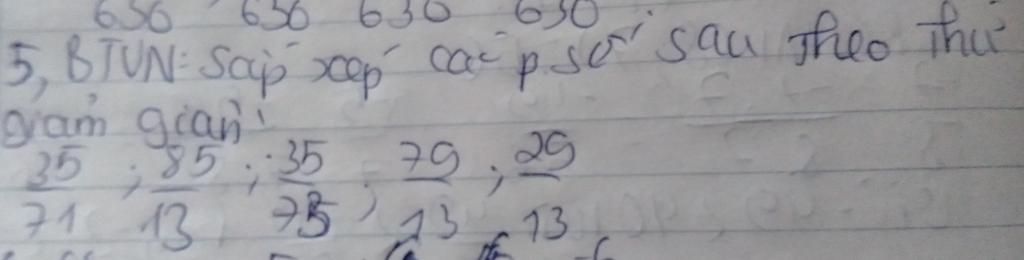 630 630 630 630
5, BTVN: Sắp xếp các p.số sau theo thứ
giảm giần
35/71 ; 85/13 ; 35/75 ; 79/13 ; 29/13